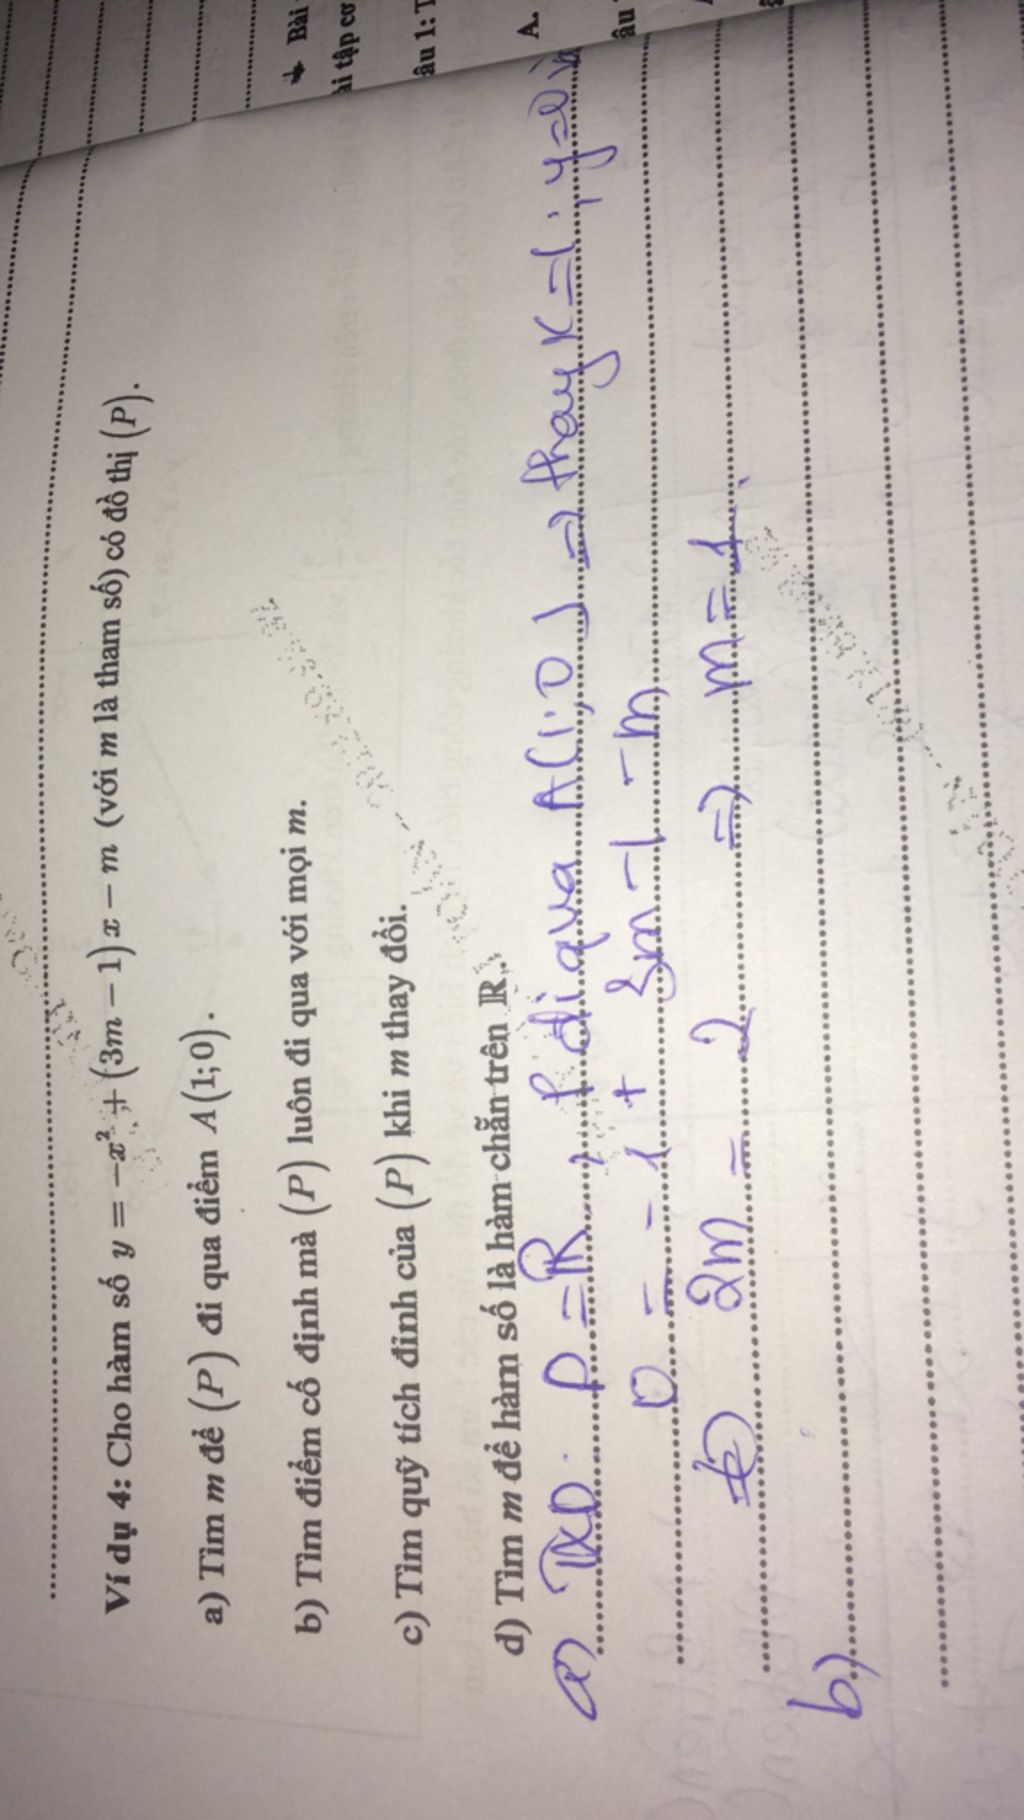 Bài
ài tập cơ
âu 1: T
A.
âu
Ví dụ 4: Cho hàm số y = -x² + (3m - 1)x - m (với m là tham số) có đồ thị (P).
a) Tìm m để (P) đi qua điểm A(1;0).
b) Tìm điểm cố định mà (P) luôn đi qua với mọi m.
c) Tìm quỹ tích đỉnh của (P) khi m thay đổi.
d) Tìm m để hàm số là hàm chẵn trên ℝ.
a) TXD. D = ℝ, P đi qua A(1;0) => thay x = 1; y = 0
0 = -1 + 3m - 1 - m
2m = 2 => m = 1.
b)